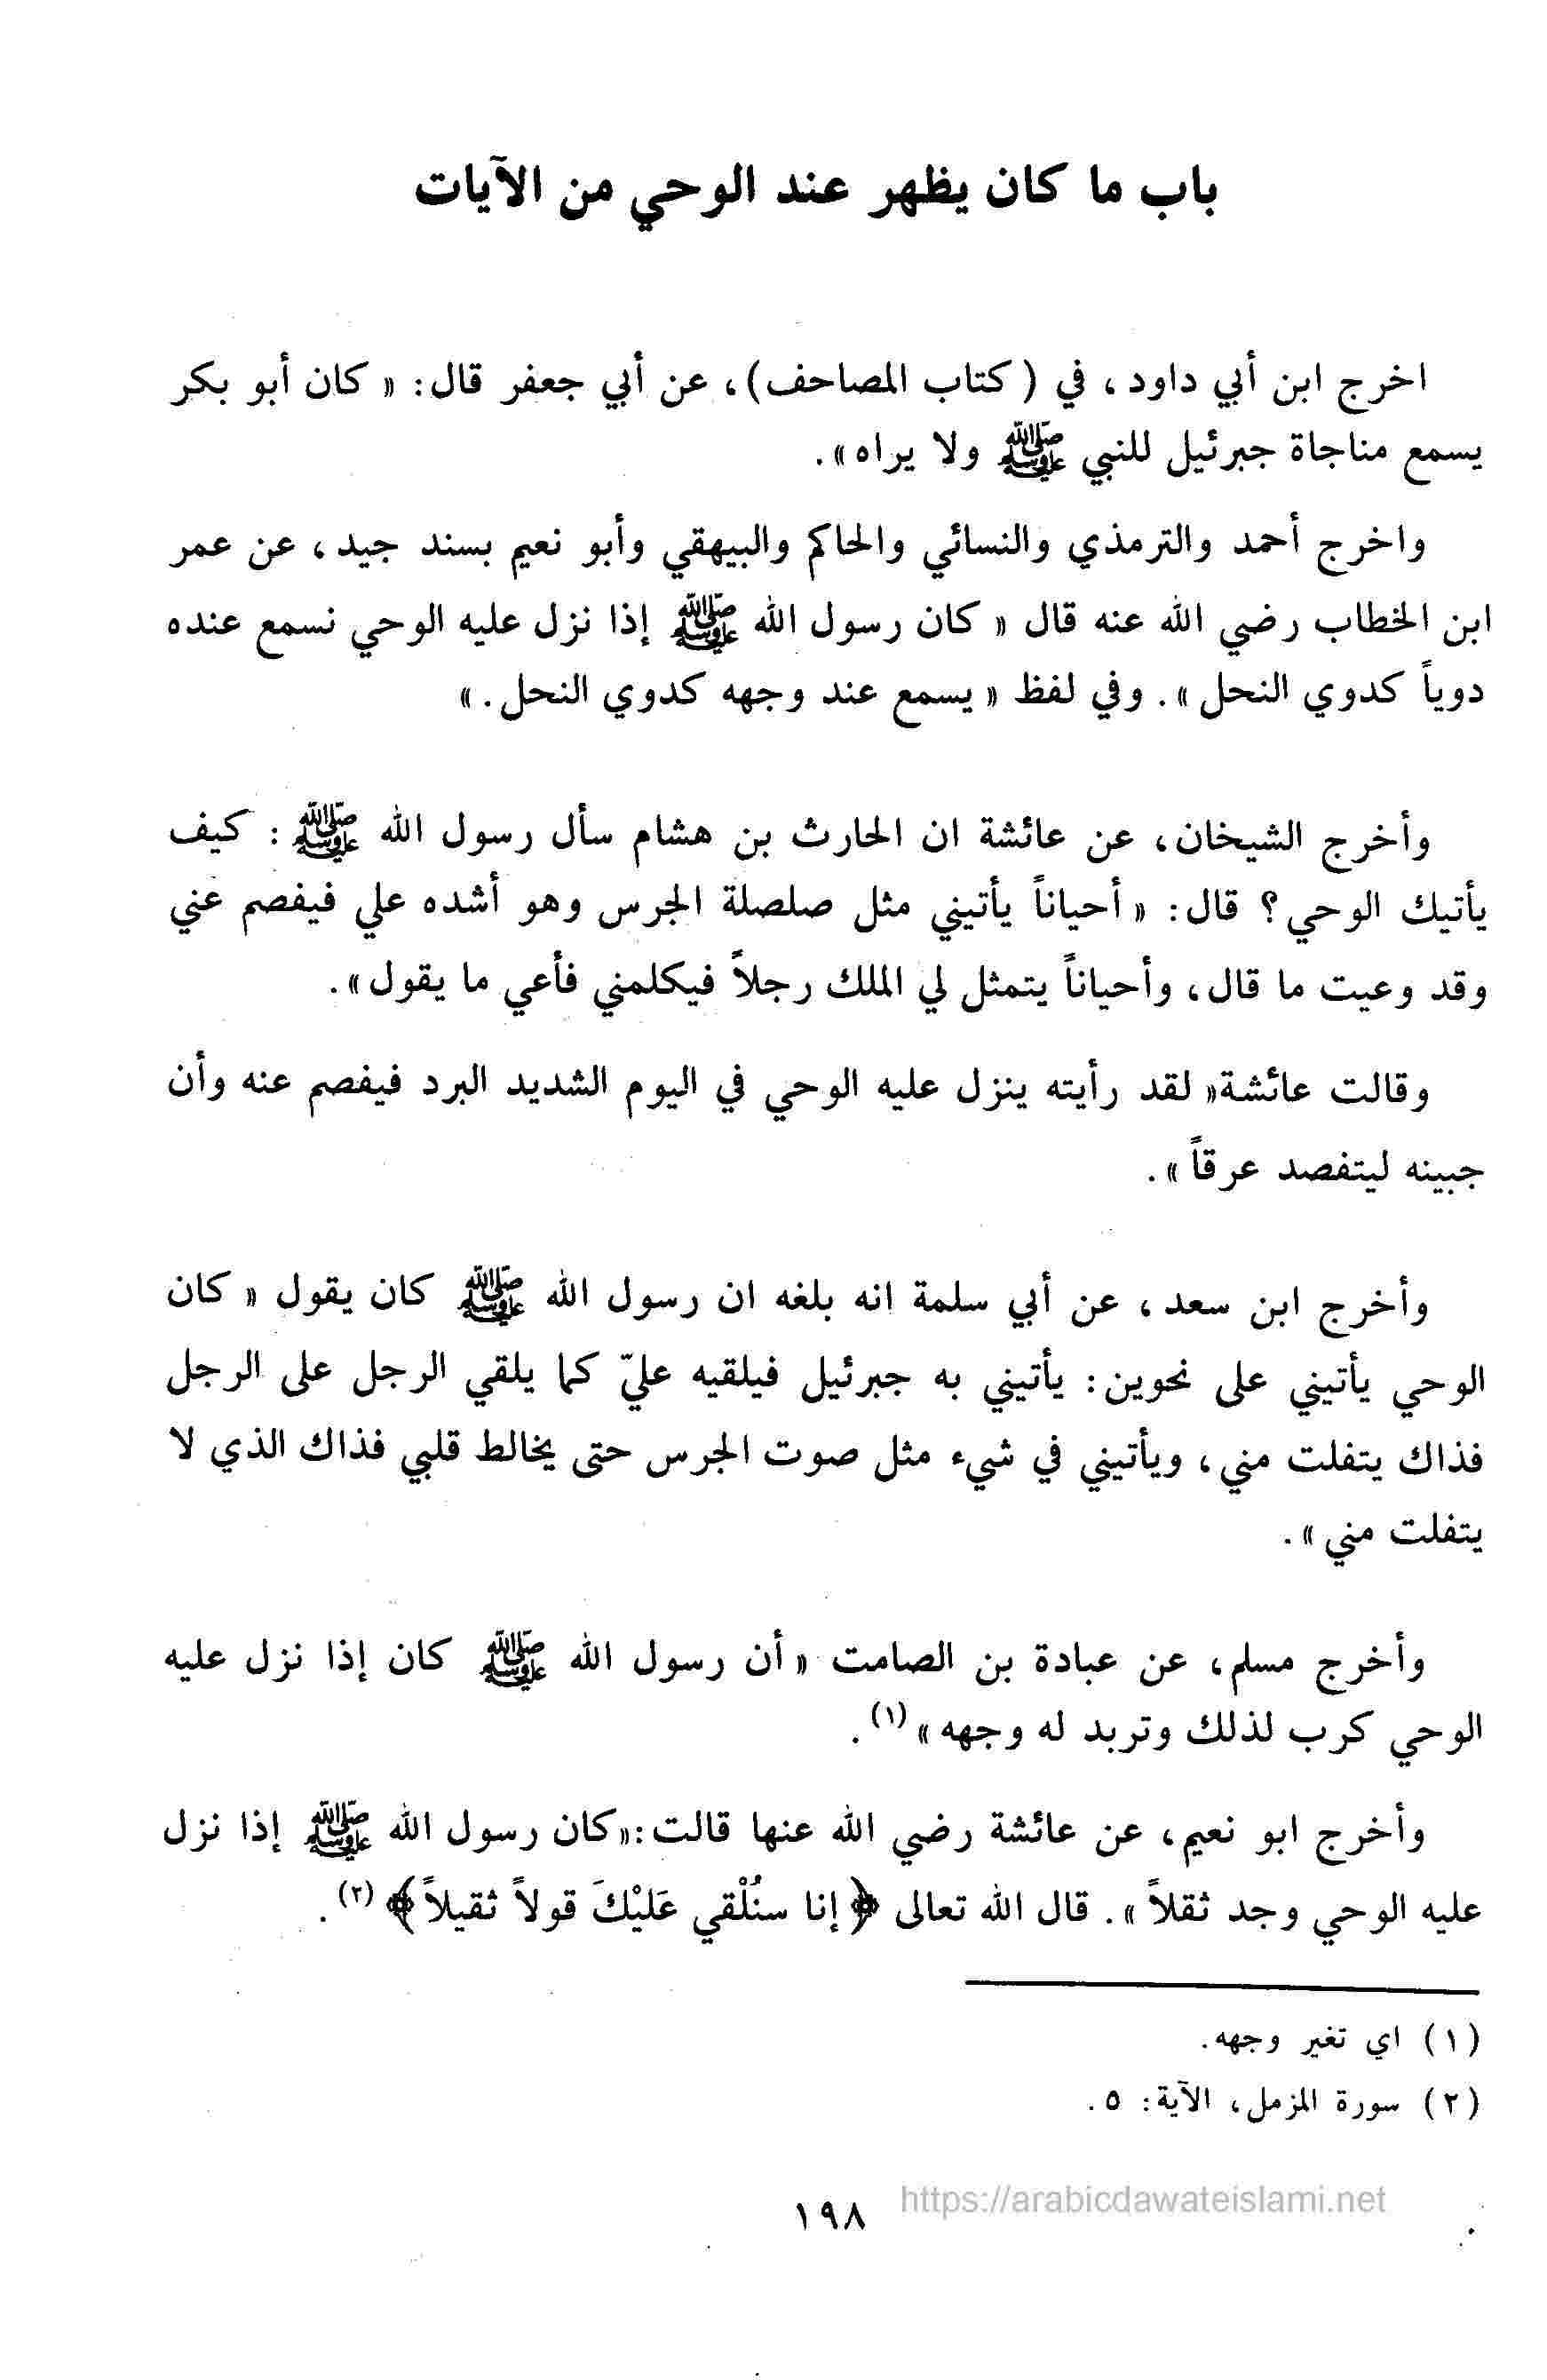 باب ما كان يظهر عند الوحي من الآيات
اخرج ابن أبي داود، في (كتاب المصاحف)، عن أبي جعفر قال: «كان أبو بكر
يسمع مناجاة جبرئيل للنبي ﷺ ولا يراه».
واخرج أحمد والترمذي والنسائي والحاكم والبيهقي وأبو نعيم بسند جيد، عن عمر
ابن الخطاب رضي الله عنه قال «كان رسول الله ﷺ إذا نزل عليه الوحي نسمع عنده
دوياً كدوي النحل». وفي لفظ «يسمع عند وجهه كدوي النحل.»
وأخرج الشيخان، عن عائشة ان الحارث بن هشام سأل رسول الله ﷺ: كيف
يأتيك الوحي؟ قال: «أحياناً يأتيني مثل صلصلة الجرس وهو أشده علي فيفصم عني
وقد وعيت ما قال، وأحياناً يتمثل لي الملك رجلاً فيكلمني فأعي ما يقول».
وقالت عائشة «لقد رأيته ينزل عليه الوحي في اليوم الشديد البرد فيفصم عنه وأن
جبينه ليتفصد عرقاً».
وأخرج ابن سعد، عن أبي سلمة انه بلغه ان رسول الله ﷺ كان يقول «كان
الوحي يأتيني على نحوين: يأتيني به جبرئيل فيلقيه عليّ كما يلقي الرجل على الرجل
فذاك يتفلت مني، ويأتيني في شيء مثل صوت الجرس حتى يخالط قلبي فذاك الذي لا
يتفلت مني».
وأخرج مسلم، عن عبادة بن الصامت «أن رسول الله ﷺ كان إذا نزل عليه
الوحي كرب لذلك وتربد له وجهه» (١).
وأخرج ابو نعيم، عن عائشة رضي الله عنها قالت: «كان رسول الله ﷺ إذا نزل
عليه الوحي وجد ثقلاً». قال الله تعالى ﴿إنا سنُلْقي عَليْكَ قولاً ثقيلاً﴾ (٢).
(١) اي تغير وجهه.
(٢) سورة المزمل، الآية: ٥.
١٩٨
https://arabicdawateislami.net